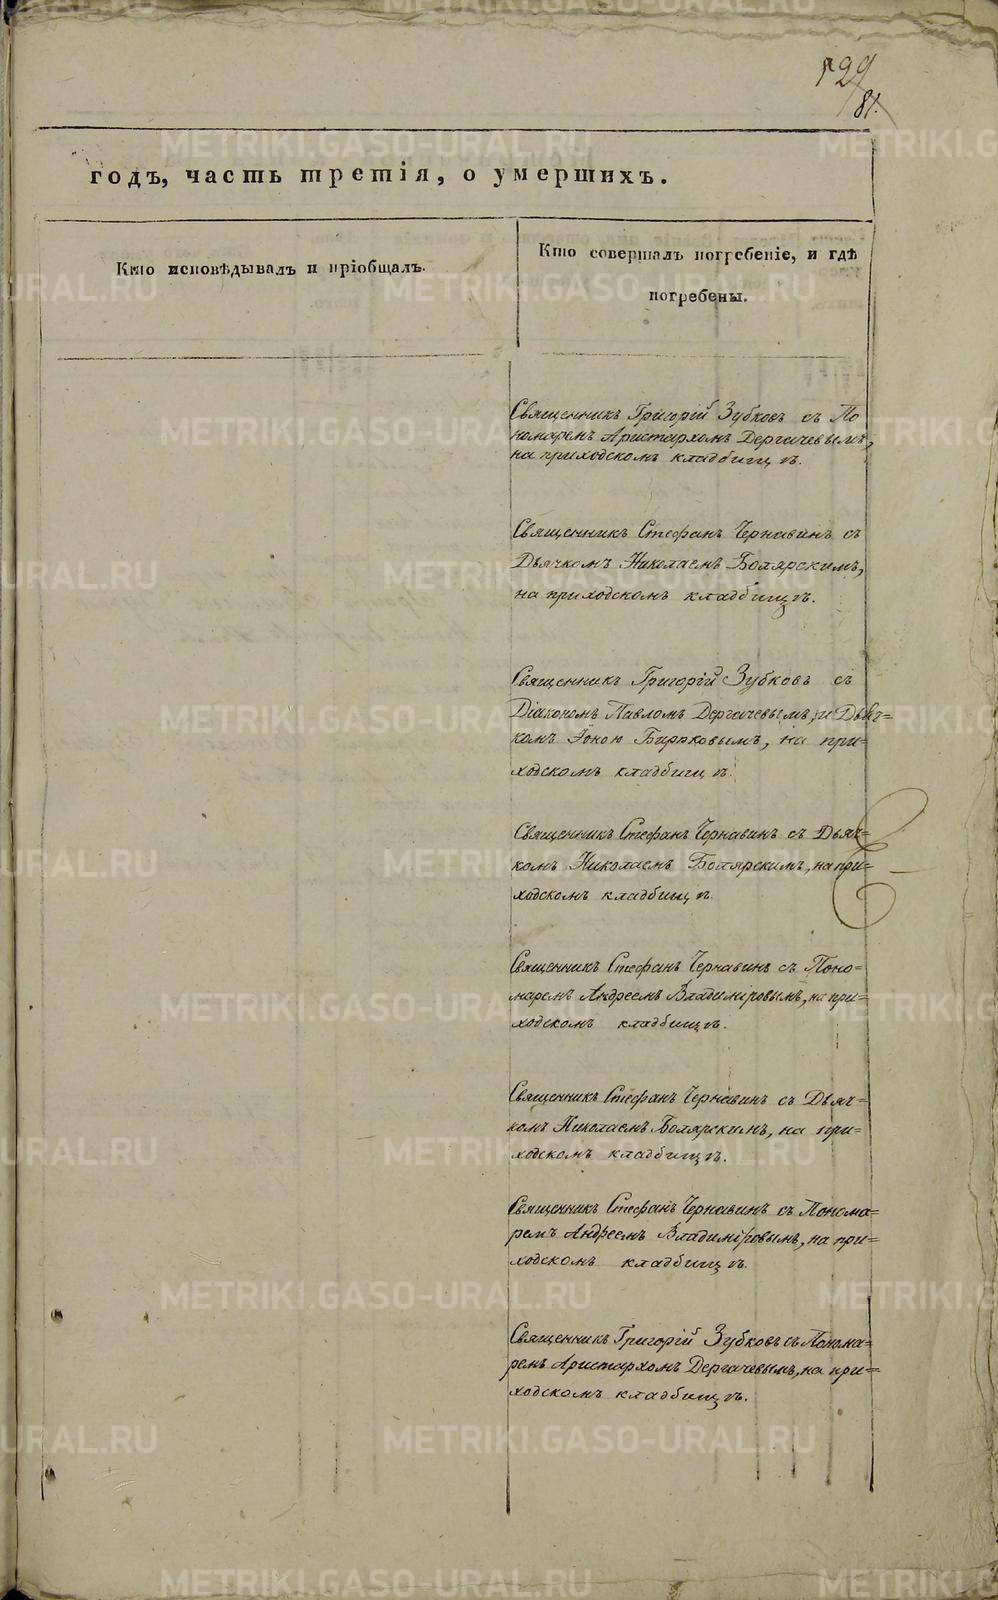 129
81.
годъ, часть третія, о умершихъ.
Кто исповѣдывалъ и пріобщалъ.
Кто совершалъ погребеніе, и гдѣ
погребены.
Священникъ Григорій Зубковъ съ По
номаремъ Аристархомъ Дергачевымъ,
на приходскомъ кладбищѣ.
Священникъ Стефанъ Чернавинъ съ
Дьячкомъ Николаемъ Болярскимъ,
на приходскомъ кладбищѣ.
Священникъ Григорій Зубковъ съ
Діакономъ Павломъ Дергачевымъ, и Дьяч=
комъ Іоною Бирюковымъ, на при=
ходскомъ кладбищѣ.
Священникъ Стефанъ Чернавинъ съ Дьяч=
комъ Николаемъ Болярскимъ, на при=
ходскомъ кладбищѣ.
Священникъ Стефанъ Чернавинъ съ Поно=
маремъ Андреемъ Владиміровымъ, на при=
ходскомъ кладбищѣ.
Священникъ Стефанъ Чернавинъ съ Дьяч=
комъ Николаемъ Болярскимъ, на при=
ходскомъ кладбищѣ.
Священникъ Стефанъ Чернавинъ съ Понома=
ремъ Андреемъ Владиміровымъ, на при=
ходскомъ кладбищѣ.
Священникъ Григорій Зубковъ съ Понома=
ремъ Аристархомъ Дергачевымъ, на при=
ходскомъ кладбищѣ.
METRIKI.GASO-URAL.RU